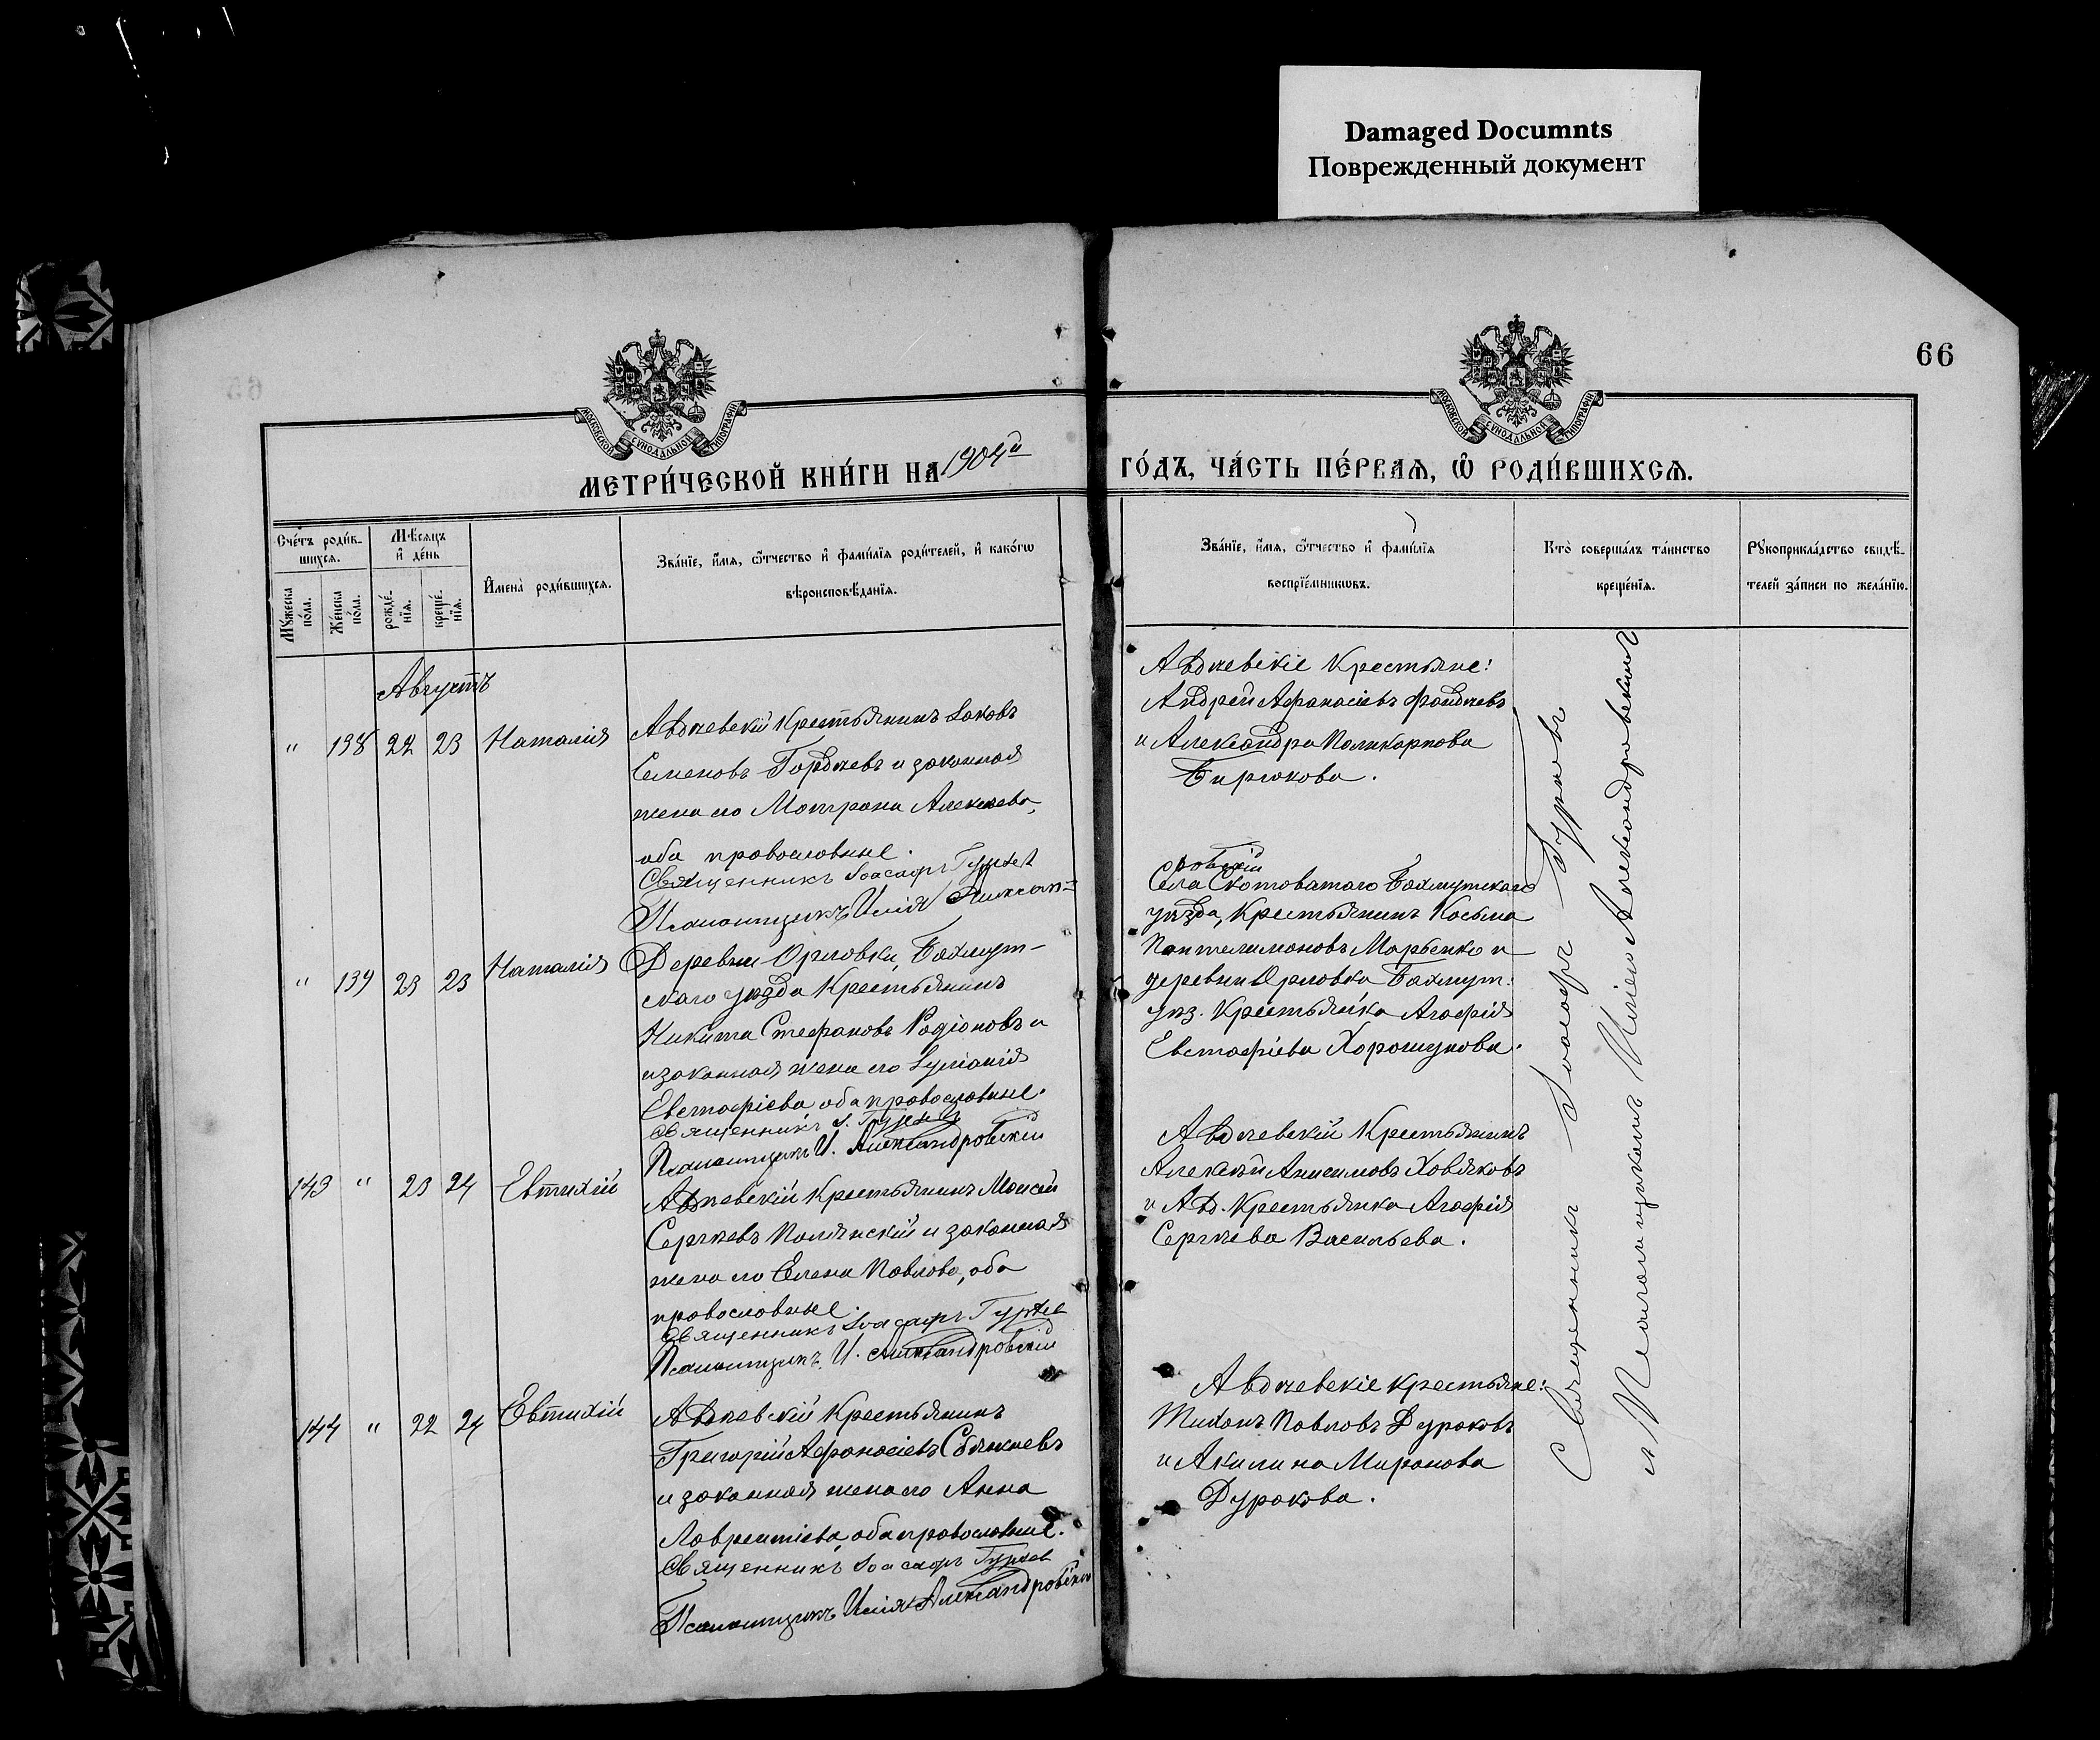 Damaged Documnts
Поврежденный документ
66
МОСКОВСКОЙ СѴНОДАЛЬНОЙ ТИПОГРАФІИ
МОСКОВСКОЙ СѴНОДАЛЬНОЙ ТИПОГРАФІИ
МЕТРИ́ЧЕСКОЙ КНИ́ГИ НА 1904й
ГО́ДЪ, ЧА́СТЬ ПЕ́РВАѦ, Ѽ РОДИ́ВШИХСѦ.
Сче́тъ роди́в-
шихсѧ.
Мꙋ́жеска по́ла.
Же́нска по́ла.
Мѣ́сѧцъ
и҆ де́нь
рожде́-
нїѧ.
креще́-
нїѧ.
И҆мена̀ роди́вшихсѧ.
Зва́нїе, и҆́мѧ, ѻ҆́тчество и҆ фами́лїѧ роди́телей, и҆ како́гѡ
вѣроисповѣ́данїѧ.
Зва́нїе, и҆́мѧ, ѻ҆́тчество и҆ фами́лїѧ
воспрїе́мникѡвъ.
Кто̀ соверша́лъ та́инство
креще́нїѧ.
Рꙋкоприкла́дство свидѣ́-
телей за́писи по жела́нїю.
Августъ
" 138 22 23 Наталія
Авдѣевскій крестьянинъ Іаковъ
Семеновъ Гордѣевъ и законная
жена его Матрона Алексѣева,
оба православные.
Священникъ Іоасафъ Гурьев
Псаломщикъ Илія Александ=
Авдѣевскіе крестьяне:
Андрей Афанасіевъ Фандѣевъ
и Александра Поликарпова
Бирюкова.
ровскій
" 139 23 23 Наталія
Деревни Орловки, Бахмут-
скаго уѣзда крестьянинъ
Никита Стефановъ Родіоновъ и
законная жена его Іуліанія
Евстафіева оба православные.
Священникъ І. Гурьев
Псаломщикъ И. Александровскій
Села Скотоватаго Бахмутскаго
уѣзда, крестьянинъ Косьма
Пантелимоновъ Марьенко и
деревни Орловка Бахмут.
уѣз. крестьянка Агафія
Евстафіева Хорошунова.
143 " 23 24 Евтихій
Авдѣевскій крестьянинъ Моисей
Сергѣевъ Полянскій и законная
жена его Елена Павлова, оба
православные.
Священникъ Іоасафъ Гурьев
Псаломщикъ И. Александровскій
Авдѣевскій крестьянинъ
Алексѣй Анисимовъ Ховяковъ
и Авд. крестьянка Агафія
Сергѣева Васильева.
144 " 22 24 Евтихій
Авдѣевскій крестьянинъ
Григорій Афонасіевъ
и законная жена его Анна
Лаврентіева, оба православные.
Священникъ Іоасафъ Гурьев
Псаломщикъ Илія Александровскій
Авдѣевскіе крестьяне:
Тихонъ Павловъ Дураковъ
и Акилина Миронова
Дуракова.
Священникъ Іоасафъ Гурьевъ
и Псаломщикомъ Иліею Александровскимъ